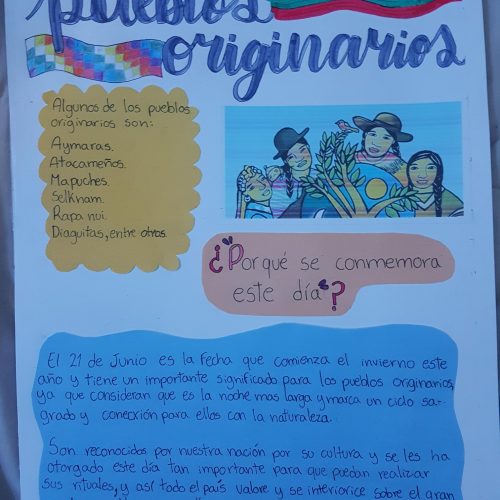 pueblos
originarios
Algunos de los pueblos
originarios son:
Aymaras.
Atacameños.
Mapuches.
Selknam.
Rapa nui.
Diaguitas, entre otros.
¿Porqué se conmemora
este día?
El 21 de Junio es la fecha que comienza el invierno este
año y tiene un importante significado para los pueblos originarios,
ya que consideran que es la noche mas larga y marca un ciclo sa-
grado y conecxión para ellos con la naturaleza.
Son reconocidos por nuestra nación por su cultura y se les ha
otorgado este día tan importante para que puedan realizar
sus rituales, y así todo el país valore y se interiorice sobre el gran